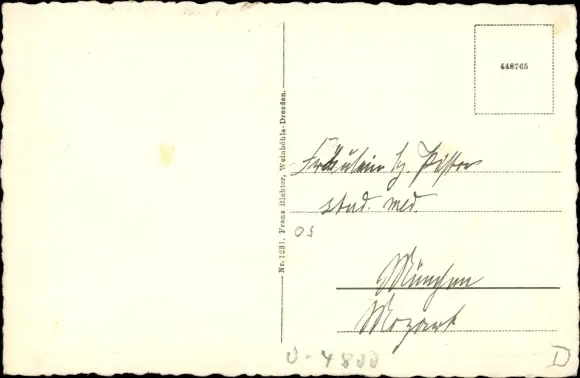 448765
Nr. 1231, Franz Richter, Weinböhla-Dresden.
Fräulein
stud. med.
OS
München
Mozart
0-4800
D